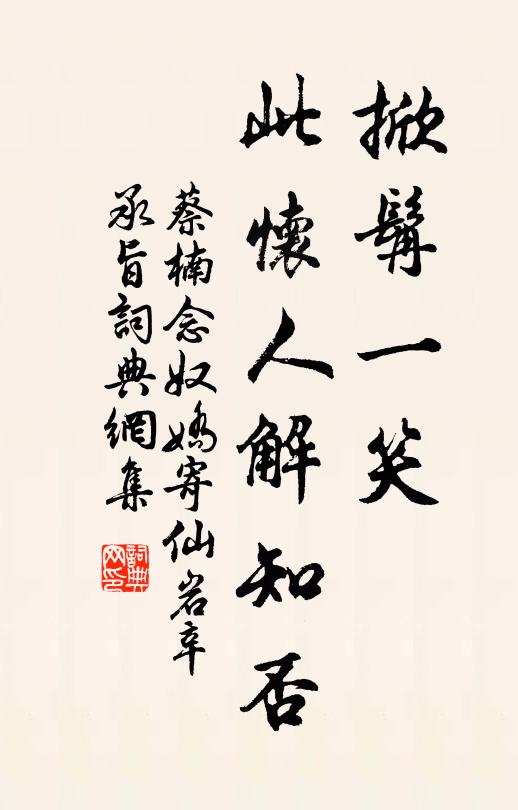 掀髯一笑
此懷人解知否
蔡楠念奴嬌寄仙岩辛
承旨詞典網集
詞典
网印